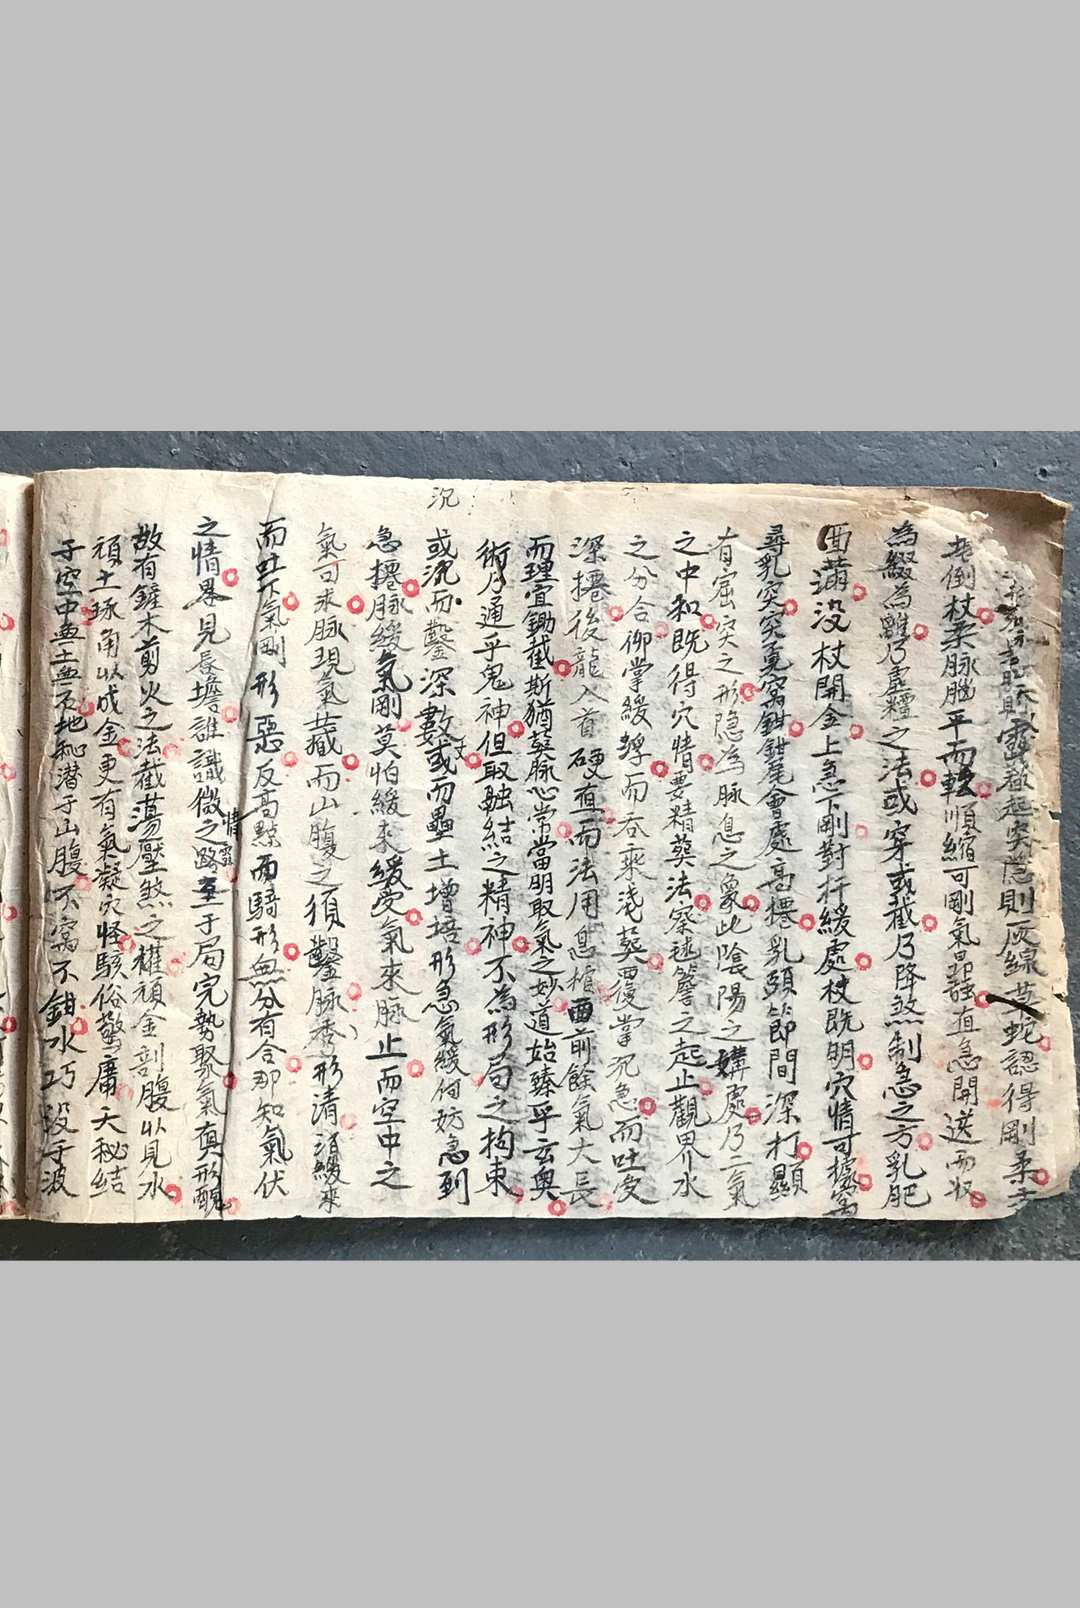 露猶起突隱則灰線草蛇認得剛柔
倒杖柔脉腦平而軟順縮可剛氣
急開送而收
為綴為離乃虛粘之法或穿或截乃降煞制急之方乳肥
面滿没杖開金上急下剛對扦緩處杖既明穴情可據窩
尋乳突突覓窩鉗鉗尾會處高捲乳頭節間深打顯
有窟突之形隐為脉息之象此陰陽之媾處乃二氣
之中和既得穴情要精葬法簷之起止觀界水
之分合仰掌緩
而吞乘浅葬覆掌沉急而吐受
深捲後龍入首硬直而法用
前餘氣大長
而理宜鋤截斯猶葬脉必常當明取氣之妙道始臻乎玄奥
術乃通乎鬼神但取融結之精神不為形局之拘束
沉
或沉而鑿深數或而壘土增培形急氣緩何妨急到
急捲脉緩氣剛莫怕緩来緩受氣來脉止而空中之
氣可求脉現氣藏而山腹之須鑿脉
形清
緩来
而
氣剛形惡反高
而騎形無分有合那知氣伏
之情界見唇
誰識微之
于局完勢聚氣真形
情
故有鏟木剪火之法截蕩壓煞之權頑金剖腹以見水
頑土琢角以成金更有氣凝穴怪駭俗驚庸天秘結
于空中盂土盂石地
潜于山腹不窩不鉗水巧没于波